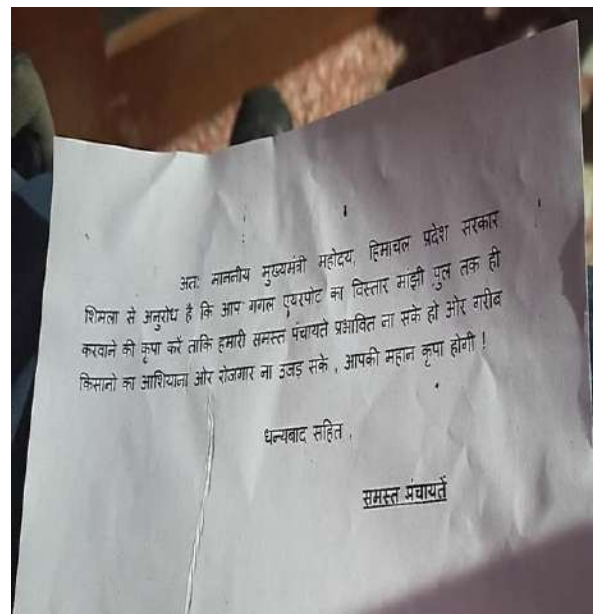 अतः माननीय मुख्यमंत्री महोदय, हिमाचल प्रदेश सरकार
शिमला से अनुरोध है कि आप गगल एयरपोट का विस्तार मांझी पुल तक ही
करवाने की कृपा करें ताकि हमारी समस्त पंचायते प्रभावित ना सके हो ओर गरीब
किसानो का आशियाना ओर रोजगार ना उजड़ सके , आपकी महान कृपा होगी !
धन्यबाद सहित ,
समस्त पंचायतें